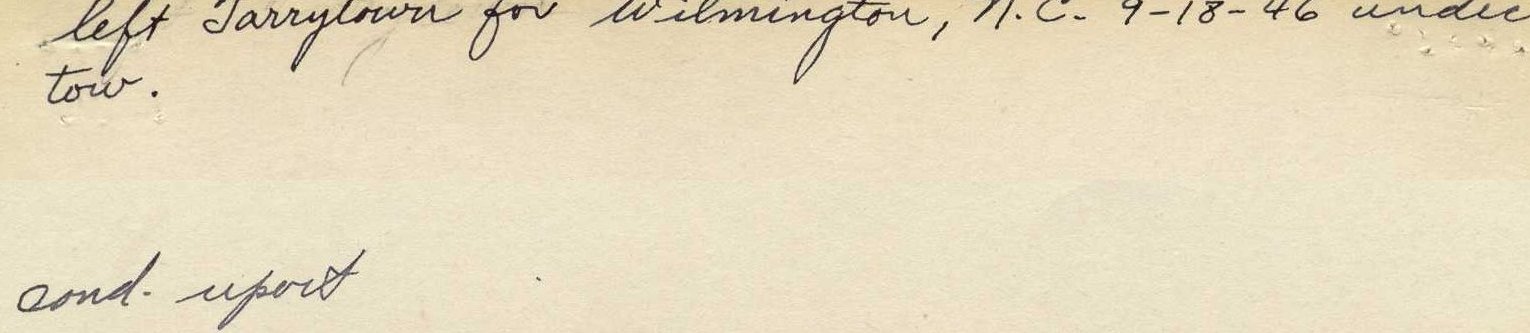 left Tarrytown for Wilmington, N.C. 9-18-46 under
tow.
cond. report